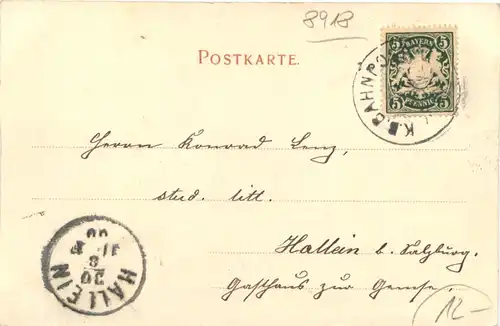 8918
POSTKARTE.
BAYERN
5 5
5 5
PFENNIG
K.B. BAHNPO
Herrn Konrad Lenz,
stud. litt.
Hallein b. Salzburg.
Gasthaus zur Gemse.
HALLEIN
20
8
00
12-